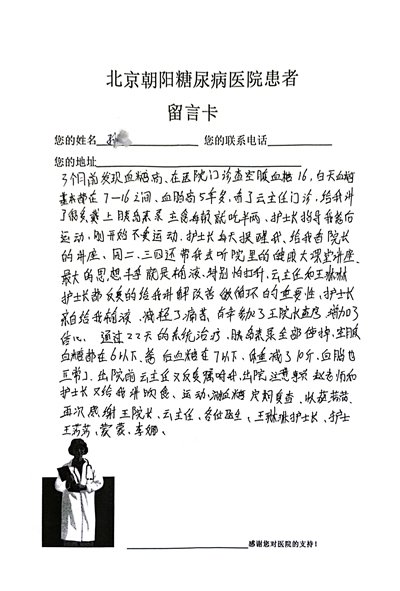 北京朝阳糖尿病医院患者
留言卡
您的姓名 您的联系电话
您的地址
3个月前发现血糖高、在医院门诊查空腹血糖16,白天血糖
基本都在7—16之间、血脂高5年多,看了云主任门诊,给我讲
了很多戴上胰岛素泵 主食每顿就吃半两、护士长指导我餐后
运动,刚开始不爱运动、护士长每天提醒我、给我看院长
的讲座、周二、三四还带我去听院里的健康大课堂讲座、
最大的思想 就是输液、特别怕扎针,云主任和王琳琳
护士长都反复的给我讲解改善微循环的重要性、护士长
亲自给我输液、减轻了痛苦 王院长查房 增加了
信心 通过22天的系统治疗,胰岛素泵全部停掉,空腹
血糖都在6以下,餐后血糖在7以下、体重减了10斤,血脂也
正常了、出院前云主任又反复嘱咐我、出院注意事项 赵老师和
护士长又给我讲饮食、运动、测血糖 定期复查、
再次感谢王院长、云主任、各位医生、王琳琳护士长、护士
王芳芳、蒙蒙、李娜、
感谢您对医院的支持!